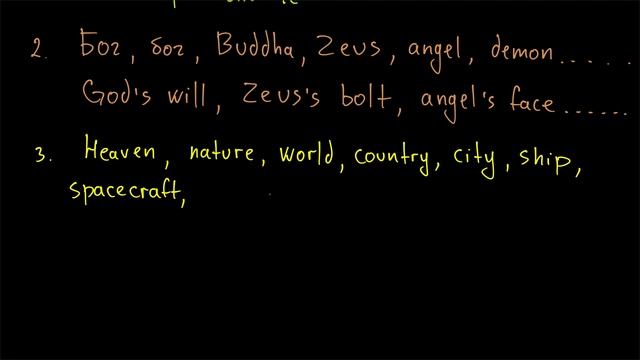 2. Бог, бог, Buddha, Zeus, angel, demon......
God's will, Zeus's bolt, angel's face......
3. Heaven, nature, world, country, city, ship,
spacecraft,